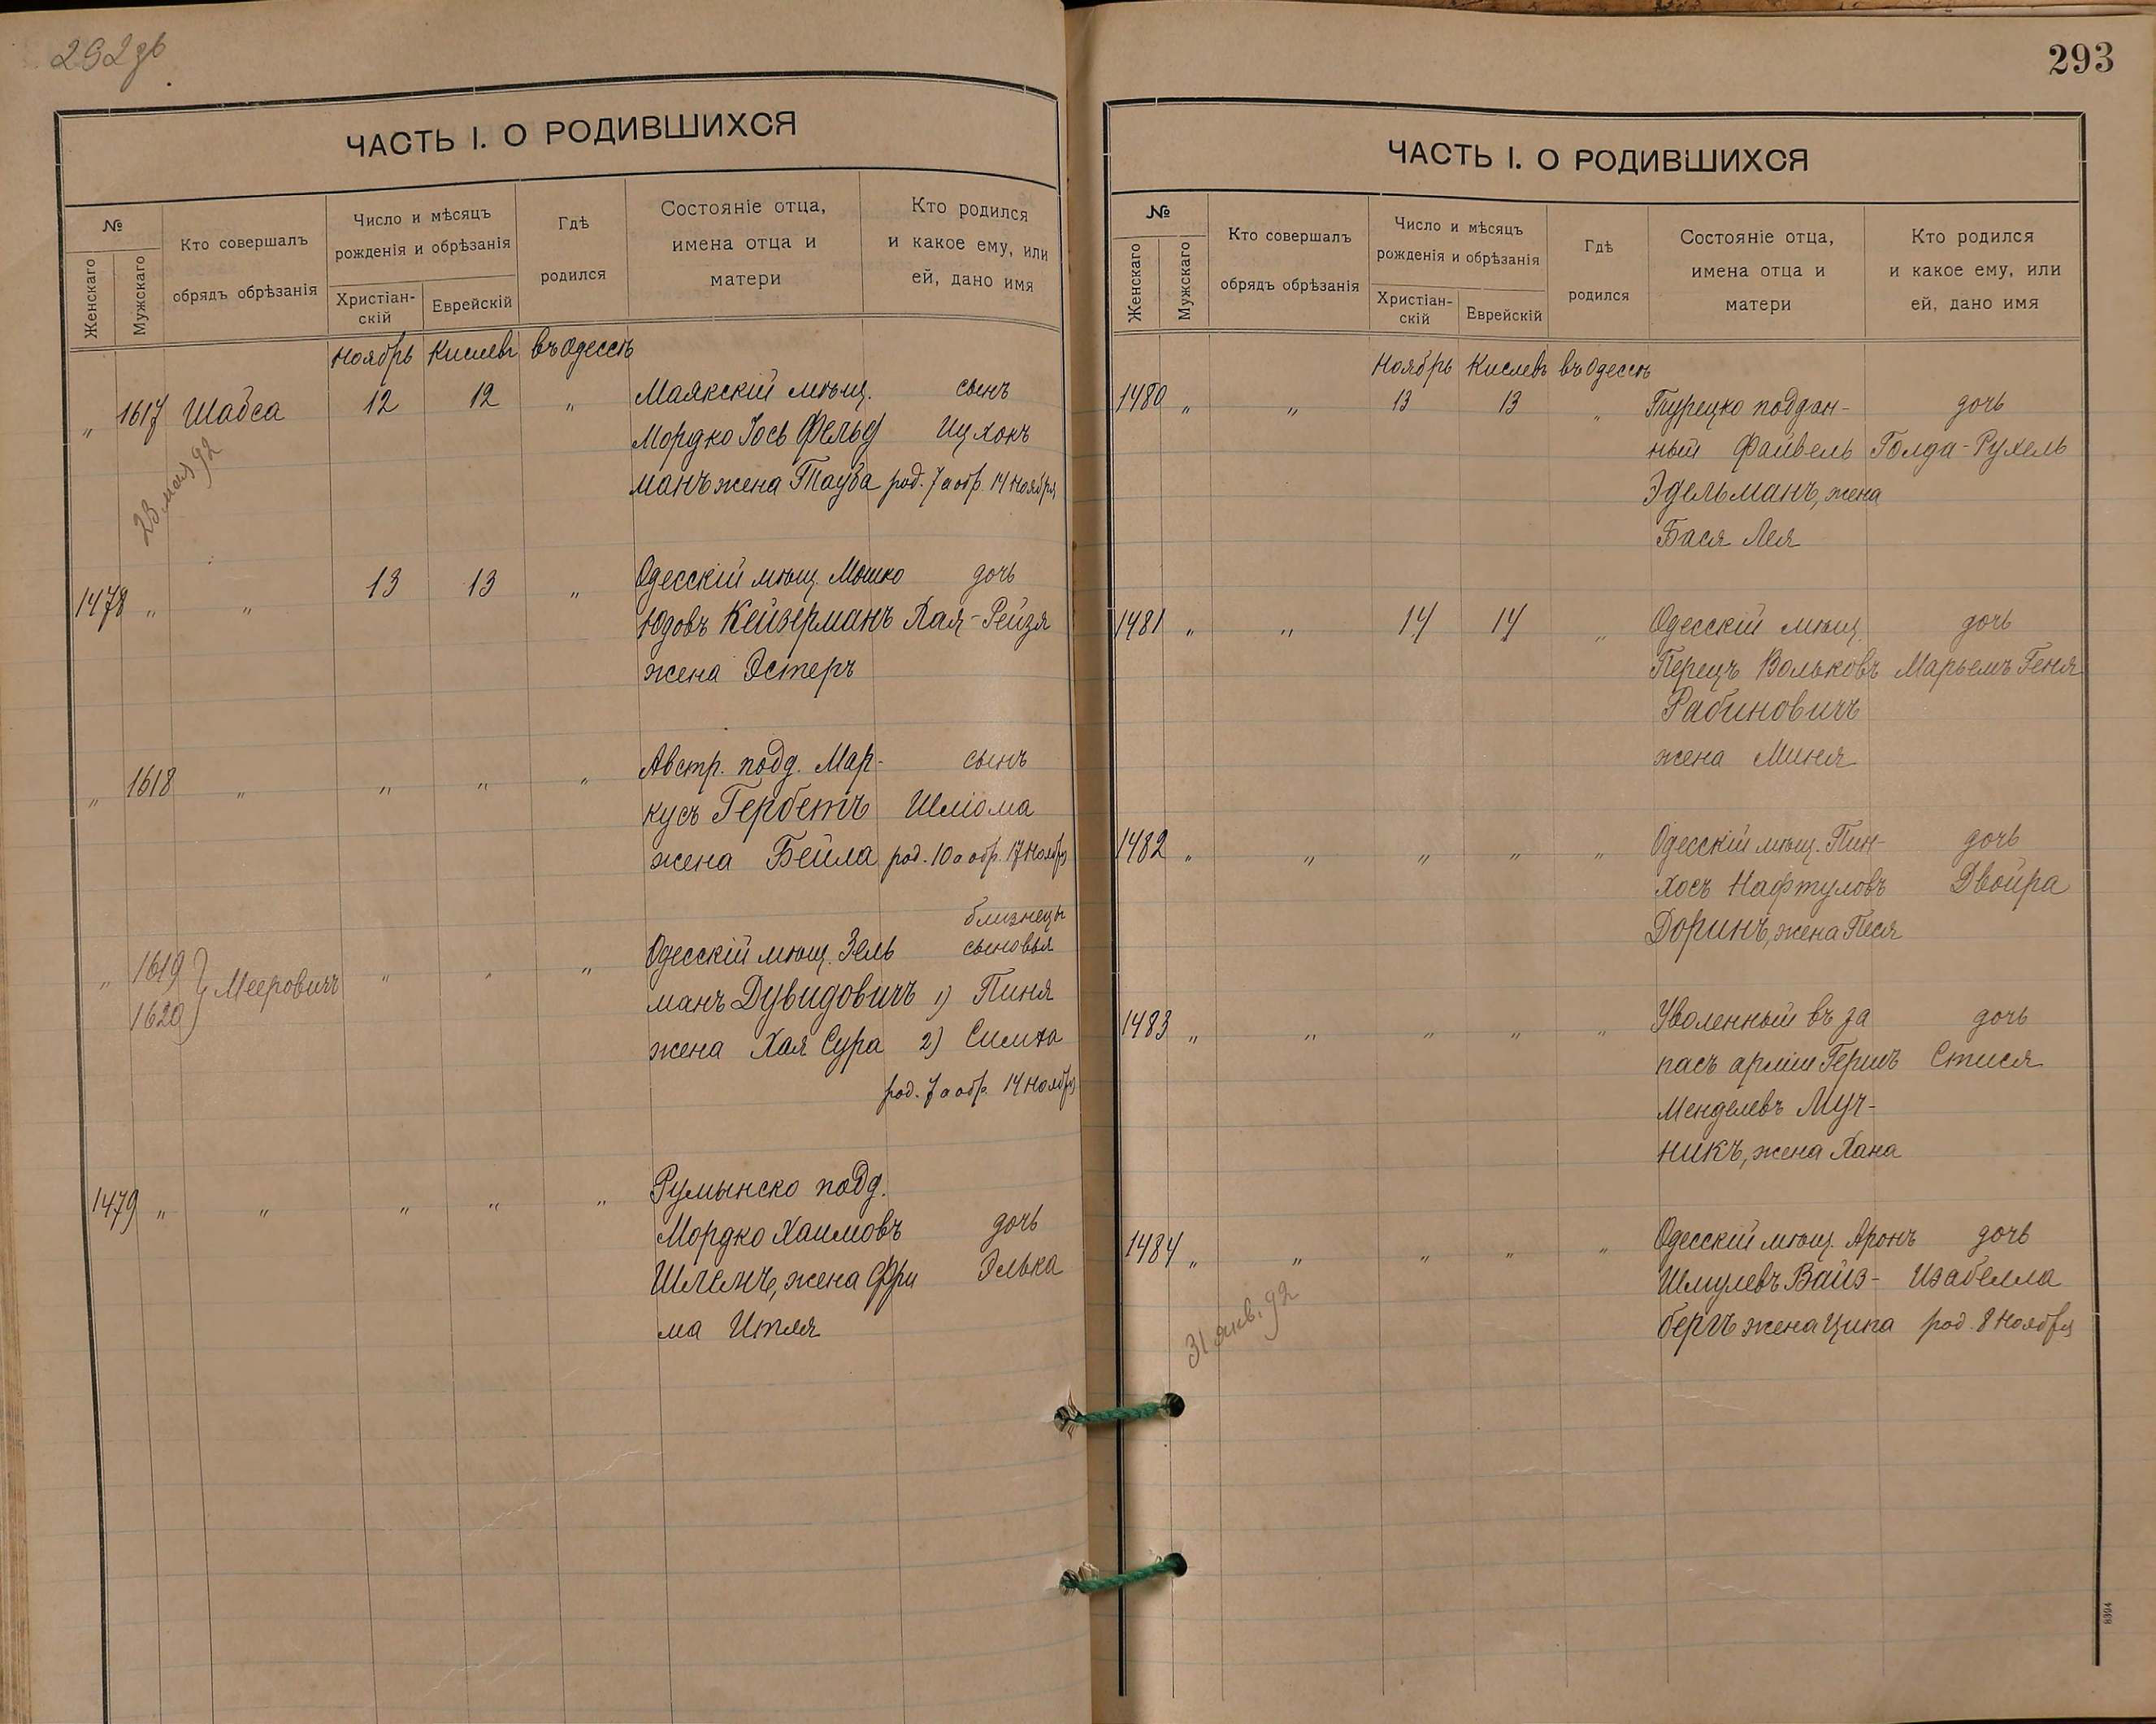 292 об
ЧАСТЬ I. О РОДИВШИХСЯ
№
Женскаго
Мужскаго
Кто совершалъ
обрядъ обрѣзанія
Число и мѣсяцъ
рожденія и обрѣзанія
Христіан-
скій
Еврейскій
Гдѣ
родился
Состояніе отца,
имена отца и
матери
Кто родился
и какое ему, или
ей, дано имя
Ноябрь Кислевъ въ Одессѣ
„ 1617 Шабса 12 12 „ Маякскій мѣщ. сынъ
Мордко Іось Фельд Ицхокъ
манъ жена Тауба род. 7 а обр. 14 Ноября
23 мая 92
1478 „ „ 13 13 „ Одесскій мѣщ. Мошко дочь
Юдовъ Кейзерманъ Хая-Рейзя
жена Эстеръ
„ 1618 „ „ „ „ Австр. подд. Мар- сынъ
кусъ Гербетъ Шліома
жена Бейла род. 10 а обр. 17 Ноября
близнецы
„ 1619 Мееровичъ „ „ „ Одесскій мѣщ. Зель сыновья
1620 манъ Дувидовичъ 1) Пиня
жена Хая Сура 2) Симха
род. 7 а обр. 14 Ноября
1479 „ „ „ „ „ Румынско подд.
Мордко Хаимовъ дочь
Шлемъ, жена Фри Элька
ма Итля
293
ЧАСТЬ I. О РОДИВШИХСЯ
№
Женскаго
Мужскаго
Кто совершалъ
обрядъ обрѣзанія
Число и мѣсяцъ
рожденія и обрѣзанія
Христіан-
скій
Еврейскій
Гдѣ
родился
Состояніе отца,
имена отца и
матери
Кто родился
и какое ему, или
ей, дано имя
Ноябрь Кислевъ въ Одессѣ
1480 „ „ 13 13 „ Турецко поддан- дочь
ный Файвель Голда-Рухель
Эдельманъ, жена
Бася Лея
1481 „ „ 14 14 „ Одесскій мѣщ. дочь
Перецъ Вольковъ Марьемъ Геня
Рабиновичъ
жена Миня
1482 „ „ „ „ „ Одесскій мѣщ. Пин- дочь
хосъ Нафтуловъ Двойра
Доринъ, жена Песя
1483 „ „ „ „ „ Уволенный въ за дочь
пасъ арміи Гершъ Стися
Менделевъ Муч-
никъ, жена Хана
1484 „ „ „ „ „ Одесскій мѣщ. Аронъ дочь
Шмулевъ Вайз- Изабелла
бергъ жена Ципа род. 8 Ноября
31 янв. 92
8394